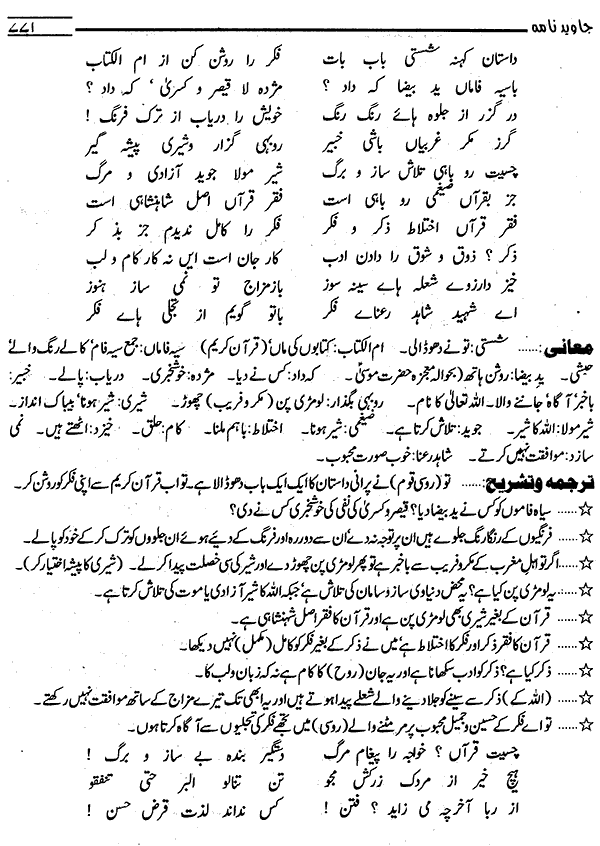 جاوید نامہ ۷۷۱
داستان کہنہ شستی باب باب فکر را روشن کن از ام الکتاب
باسیہ فاماں ید بیضا کہ داد؟ مژدہ لا قیصر و کسریٰ، کہ داد؟
در گزر از جلوہ ہائے رنگ رنگ خویش را دریاب از ترک فرنگ!
گرز مکر غربیاں باشی خبیر روبہی گزار وشیری پیشہ گیر
چیست روباہی تلاش ساز و برگ شیر مولا جوید آزادی و مرگ
جز بقرآں ضیغمی روباہی است فقر قرآں اصل شاہنشاہی است
فقر قرآں اختلاط ذکر و فکر فکر را کامل ندیدم جز بذکر
ذکر؟ ذوق و شوق را دادن ادب کار جان است ایں نہ کار کام و لب
خیز دارزوے شعلہ ہاے سینہ سوز بازمزاج تو نمی سازد ہنوز
اے شہید شاہد رعناے فکر باتو گویم از تجلی ہاے فکر
معانی:...... شستی: تو نے دھو ڈالی۔ ام الکتاب: کتابوں کی ماں (قرآن کریم) سیہ فاماں: جمع سیہ فام، کالے رنگ والے،
حبشی۔ ید بیضا: روشن ہاتھ (بحوالہ معجزہ حضرت موسیٰؑ۔ کہ داد: کس نے دیا۔ مژدہ: خوشخبری۔ دریاب: پالے۔ خبیر:
باخبر، آگاہ، جاننے والا۔ اللہ تعالیٰ کا نام۔ روبہی بگذار: لومڑی پن (مکر و فریب) چھوڑ۔ شیری: شیر ہونا، بیباک انداز۔
شیر مولا: اللہ کا شیر۔ جوید: تلاش کرتا ہے۔ ضیغمی: شیر ہونا۔ اختلاط: باہم ملنا۔ کام: حلق۔ خیزد: اٹھتے ہیں۔ نمی
سازد: موافقت نہیں کرتے۔ شاہد رعنا: خوب صورت محبوب۔
ترجمہ وتشریح:...... تو (روسی قوم) نے پرانی داستان کا ایک ایک باب دھو ڈالا ہے۔ تو اب قرآن کریم سے اپنی فکر کو روشن کر۔
☆...... سیاہ فاموں کو کس نے ید بیضا دیا؟ قیصر و کسریٰ کی نفی کی خوشخبری کس نے دی؟
☆...... فرنگیوں کے رنگارنگ جلوے ہیں ان پر توجہ نہ دے، اُن سے دور رہ اور فرنگ کے دیئے ہوئے ان جلووں کو ترک کر کے خود کو پالے۔
☆...... اگر تو اہل مغرب کے مکر و فریب سے باخبر ہے تو پھر لومڑی پن چھوڑ دے اور شیر کی سی خصلت پیدا کر لے۔ (شیری کا پیشہ اختیار کر)۔
☆...... یہ لومڑی پن کیا ہے؟ یہ محض دنیاوی ساز و سامان کی تلاش ہے، جبکہ اللہ کا شیر آزادی یا موت کی تلاش کرتا ہے۔
☆...... قرآن کے بغیر شیری بھی لومڑی پن ہے اور قرآن کا فقر اصل شہنشاہی ہے۔
☆...... قرآن کا فقر ذکر اور فکر کا اختلاط ہے، میں نے ذکر کے بغیر فکر کو کامل (مکمل) نہیں دیکھا۔
☆...... ذکر کیا ہے؟ ذکر کو ادب سکھانا ہے اور یہ جان (روح) کا کام ہے نہ کہ زبان و لب کا۔
☆...... (اللہ کے) ذکر سے سینے کو جلا دینے والے شعلے پیدا ہوتے ہیں اور یہ ابھی تک تیرے مزاج کے ساتھ موافقت نہیں رکھتے۔
☆...... تو اے فکر کے حسین و جمیل محبوب پر مرمٹنے والے (روسی) میں تجھے فکر کی تجلیوں سے آگاہ کرتا ہوں۔
چیست قرآں؟ خواجہ را پیغام مرگ دستگیر بندہ بے ساز و برگ!
ہیچ خیر از مردک زرکش مجو تن تنالو البر حتی تنفقو
از ربا آخرچہ می زاید؟ فتن! کس نداند لذت قرض حسن!